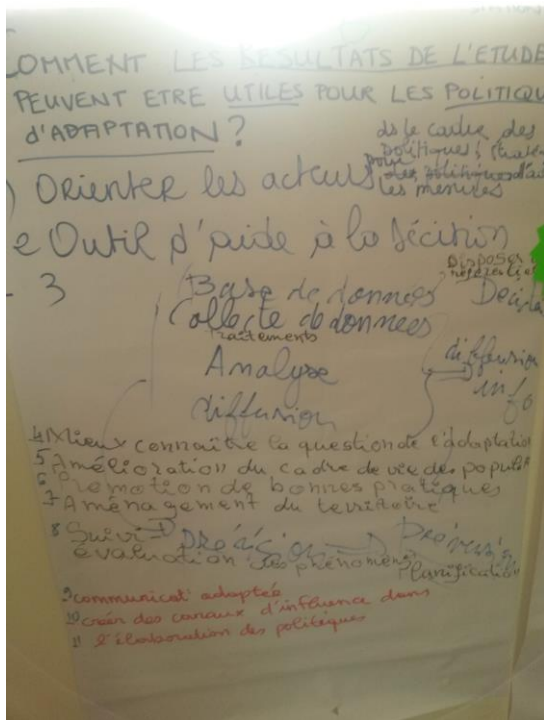 COMMENT LES RESULTATS DE L'ETUDE
PEUVENT ETRE UTILES POUR LES POLITIQU
d'ADAPTATION ?
ds le cadre des
politiques
) Orienter les acteurs pour
les mesures
e Outil d'aide à la décision
- 3
Base de données
Disposer
Collecte de données
traitements
Analyse
diffusion
diffusion
info
4 Mieux connaître la question de l'adaptation
5 Amélioration du cadre de vie des popul
6 Promotion de bonnes pratiques
7 Aménagement du territoire
8 Suivi
évaluation des phénomèn
Précision
Prévision
Planification
9 communicat° adaptée
10 créer des canaux d'influence dans
11 l'élaboration des politiques